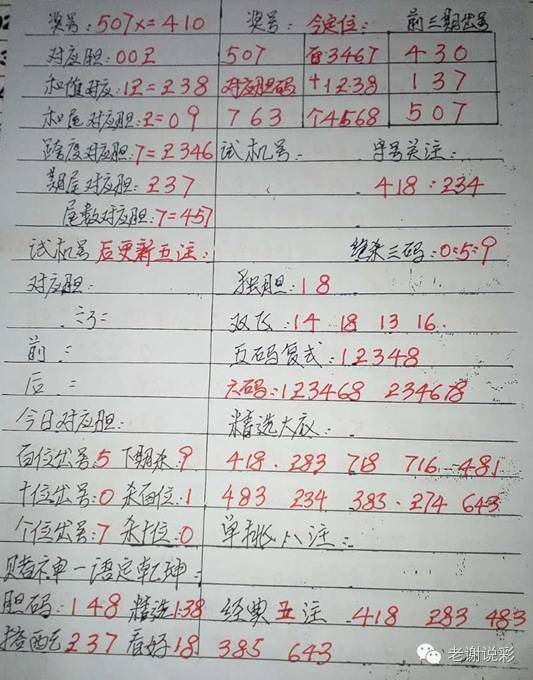 奖号:507x=410 奖号: 今定位: 前三期出号
对应胆:00Z 507 百3467 430
和值对应:12=238 对应胆码 十1238 137
和尾对应胆:2=09 763 个4568 507
跨度对应胆:7=2346 试机号: 字号关注:
期尾对应胆:237 418:234
尾数对应胆:7=457
试机号后更新五注: 绝杀三码:0:5:9
对应胆: 独胆:18
双飞:14 18 13 16.
前 := 五码复式:12348
后 := 六码:123468 234678
今日对应胆: 精选大底:
百位出号:5 下期杀:9 418. 283 718 716 481
十位出号:0 杀百位:1 483 234 383. 274 643
个位出号:7 杀十位:0 单挑八注:
赌神一语定乾坤:
胆码:148 精选138 经典五注 418 283 483
搭配237 看好18 385 643
老谢说彩